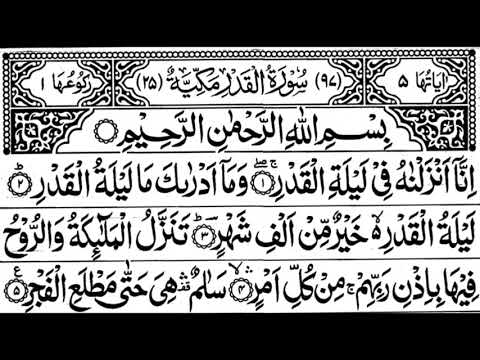 اٰیَاتُهَا ۵ (۹۷) سُوْرَةُ الْقَدْرِ مَكِّیَّةٌ (۲۵) رُكُوْعُهَا ۱
بِسْمِ اللّٰهِ الرَّحْمٰنِ الرَّحِیْمِ
اِنَّاۤ اَنْزَلْنٰهُ فِیْ لَیْلَةِ الْقَدْرِ ۚۖ‏﴿۱﴾ وَمَاۤ اَدْرٰىكَ مَا لَیْلَةُ الْقَدْرِ ؕ‏﴿۲﴾
لَیْلَةُ الْقَدْرِ ۙ۬ خَیْرٌ مِّنْ اَلْفِ شَهْرٍ ؕ‏﴿۳﴾ تَنَزَّلُ الْمَلٰٓىِٕكَةُ وَالرُّوْحُ
فِیْهَا بِاِذْنِ رَبِّهِمْ ۚ مِنْ كُلِّ اَمْرٍ ۙۛ‏﴿۴﴾ سَلٰمٌ ۛ۫ هِیَ حَتّٰی مَطْلَعِ الْفَجْرِ ‏﴿۵﴾ ع